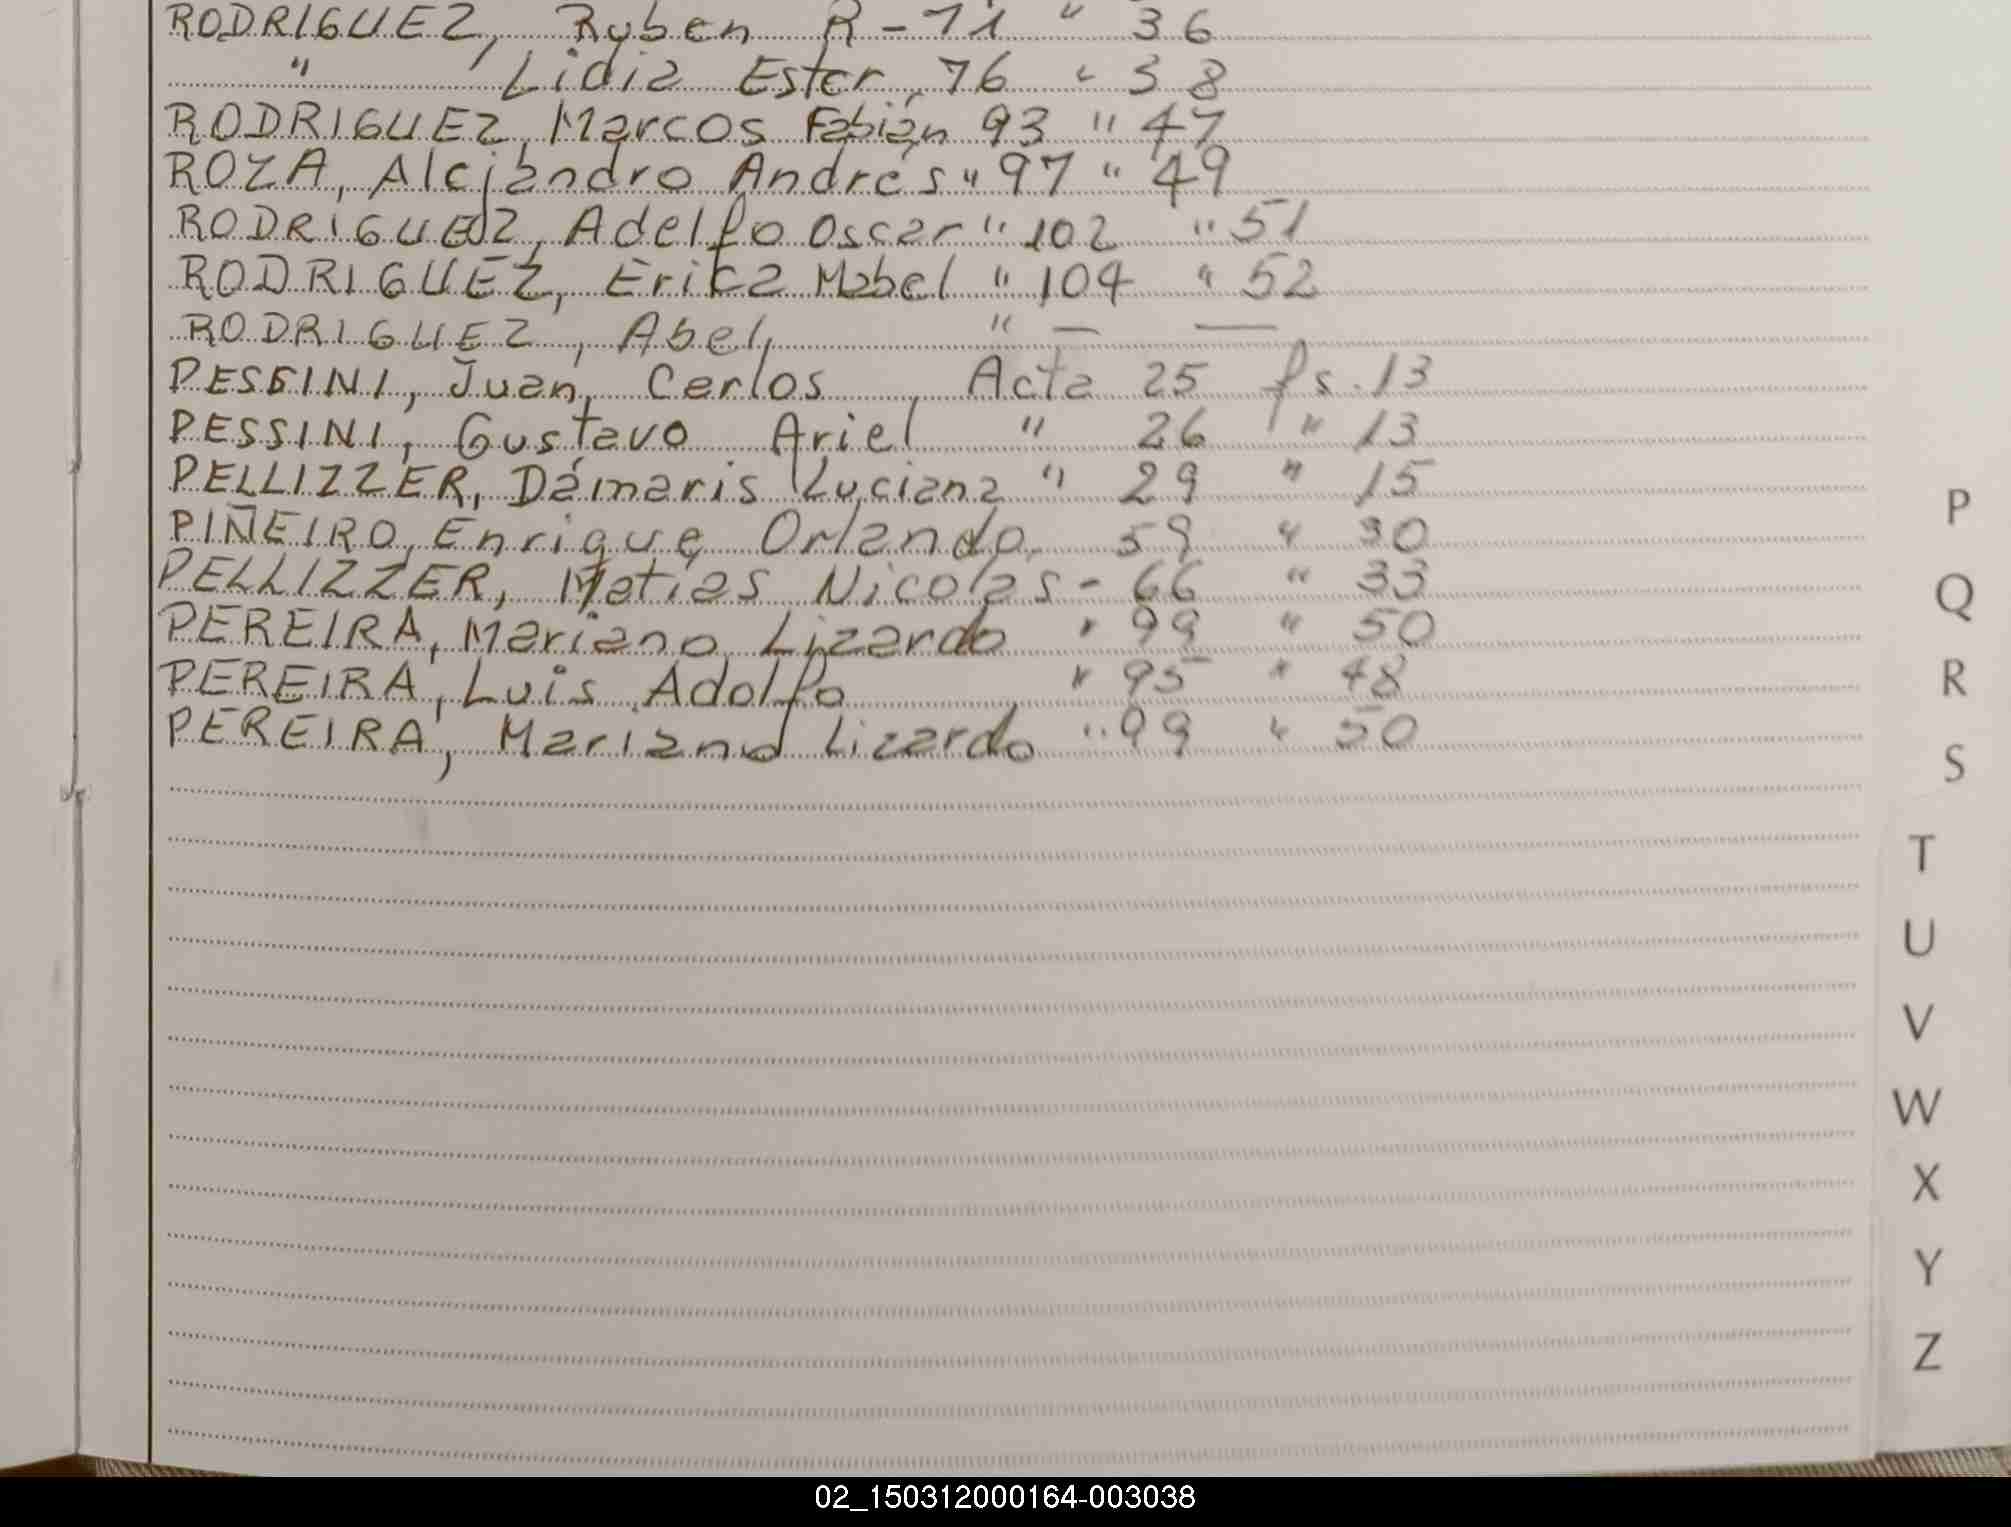 RODRIGUEZ, Ruben R - 71 " 36
" Lidia Ester, 76 " 38
RODRIGUEZ, Marcos Fabián 93 " 47
ROZA, Alejandro Andrés " 97 " 49
RODRIGUEZ, Adelfo Oscar " 102 " 51
RODRIGUEZ, Erica Mabel " 104 " 52
RODRIGUEZ, Abel, " — —
PESSINI, Juan Carlos Acta 25 fs. 13
PESSINI, Gustavo Ariel " 26 " 13
PELLIZZER, Dámaris Luciana " 29 " 15
PIÑEIRO, Enrique Orlando 59 " 30
PELLIZZER, Matías Nicolás - 66 " 33
PEREIRA, Mariano Lizardo " 99 " 50
PEREIRA, Luis Adolfo " 95 " 48
PEREIRA, Mariano Lizardo " 99 " 50
P
Q
R
S
T
U
V
W
X
Y
Z
02_150312000164-003038